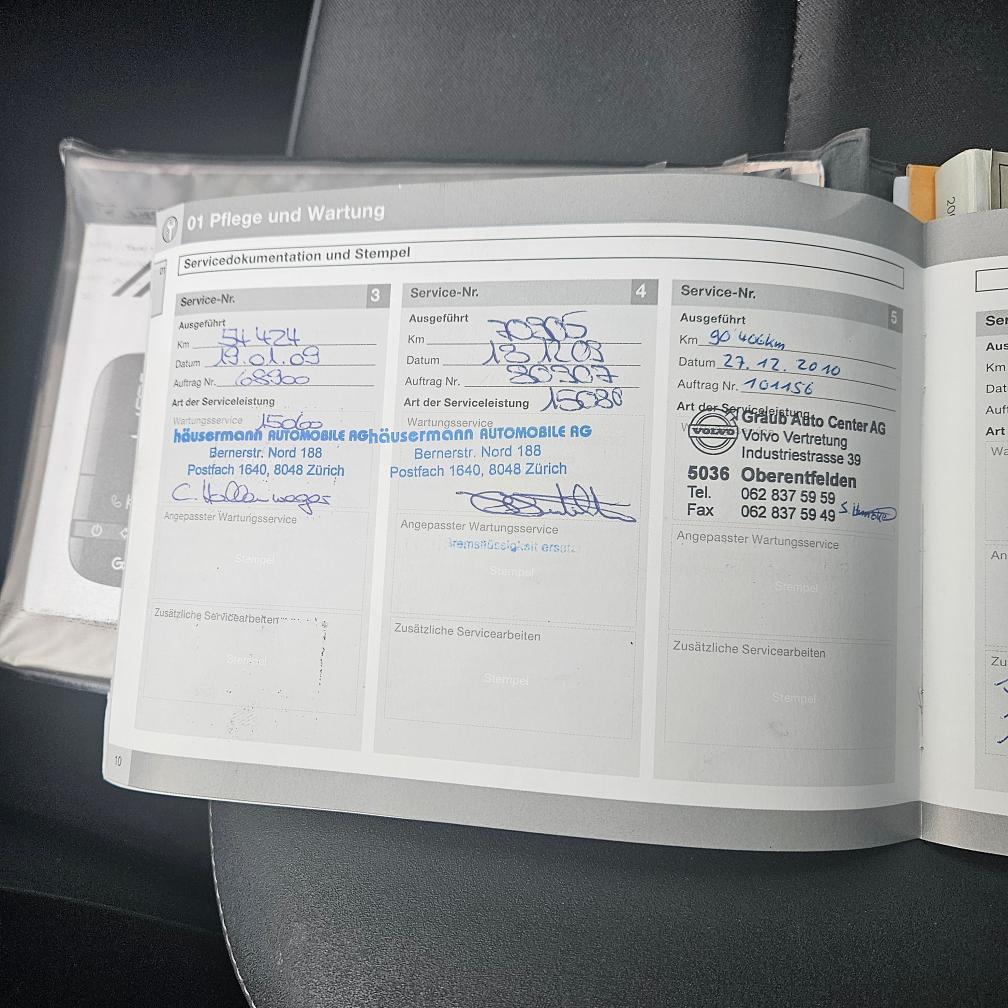 01 Pflege und Wartung
01
Servicedokumentation und Stempel
Service-Nr. 3
Ausgeführt
Km 54424
Datum 19.01.09
Auftrag Nr. 68900
Art der Serviceleistung
Wartungsservice 15060
häusermann AUTOMOBILE AG
Bernerstr. Nord 188
Postfach 1640, 8048 Zürich
Angepasster Wartungsservice
Stempel
Zusätzliche Servicearbeiten
Stempel
10
Service-Nr. 4
Ausgeführt
Km 70905
Datum
Auftrag Nr. 80307
Art der Serviceleistung 15080
Wartungsservice
häusermann AUTOMOBILE AG
Bernerstr. Nord 188
Postfach 1640, 8048 Zürich
Angepasster Wartungsservice
Bremsflüssigkeit ersetzt
Stempel
Zusätzliche Servicearbeiten
Stempel
Service-Nr. 5
Ausgeführt
Km 90'406km
Datum 27.12.2010
Auftrag Nr. 101156
Art der Serviceleistung
VOLVO
Graub Auto Center AG
Volvo Vertretung
Industriestrasse 39
5036 Oberentfelden
Tel. 062 837 59 59
Fax 062 837 59 49
Angepasster Wartungsservice
Stempel
Zusätzliche Servicearbeiten
Stempel
Ser
Aus
Km
Dat
Auf
Art
Wa
An
Zu